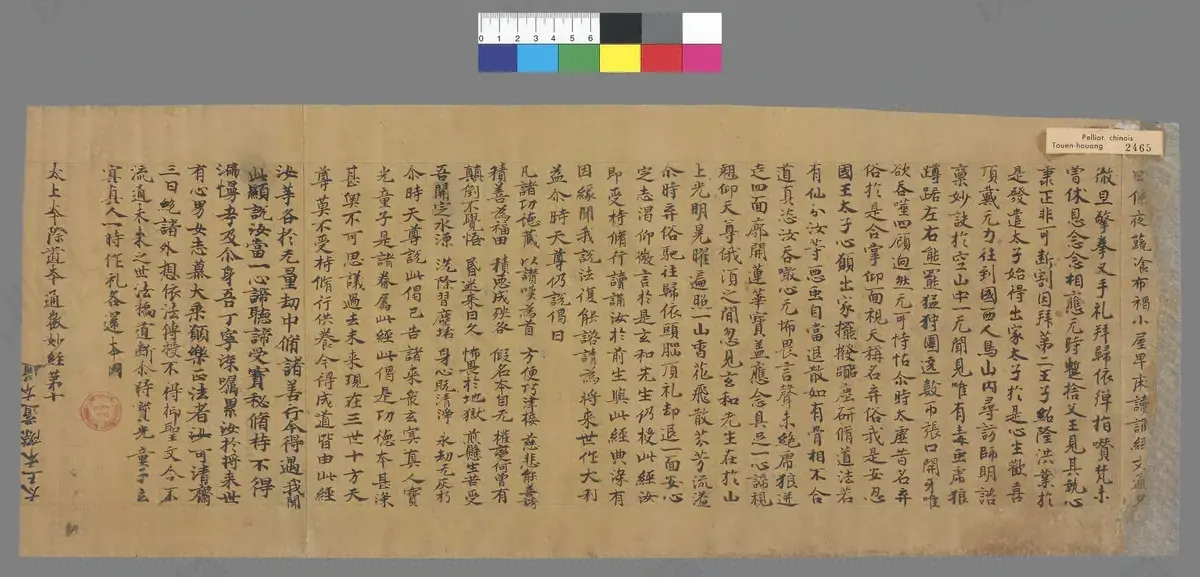 Pelliot chinois
Touen-houang 2465
0 1 2 3 4 5 6
日係夜蔬飡布褐小屋單床讀誦經文通
徹旦擎拳叉手礼拜歸依彈指嘆梵未
嘗休息念念相應无時蹔捨父王見其執心
秉正非可斷割因拜第二王子紹隆洪業於
是發遣太子始得出家太子於是心生歡喜
頂戴元力往到國西人鳥山内尋訪師明諮
稟妙訣於空山中一无聞見唯有毒虫虎狼
蹲踞左右能羆猛狩圍遶數帀張口開牙唯
欲吞噬四顧迥然无可恃怙尒時太虚昔名弃
俗於是合掌仰面視天稱名弃俗我是安忍
國王太子心願出家擺撥囂塵研脩道法若
有仙分汝等惡虫自當退散如有骨相不合
道真恣汝吞噉心无怖畏言聲未絶虎狼迸
走四面廓開蓮華寶盖應念具足一心諦視
翹仰天尊俄湏之間忽見玄和先生在於山
上光明晃曜遍照一山香花飛散芬芳流溢
尒時弃俗馳往歸依頭腦頂礼却退一面安心
定志渴仰微言於是玄和先生仍授此經汝
即受持脩行讀誦汝於前生與此經典深有
因緣聞我說法復能諮請為將来世作大利
益尒時天尊仍說偈曰
凡諸功德藏 以讚嘆為首 方便巧津接 慈悲能喜捨
積善為福田 積惡成殃咎 假名本自无 權實何曾有
顛倒不覺悟 昏迷来日久 怖畏於地獄 煎熬生苦受
吾開定水源 洗除習塵垢 身心既清淨 永劫无灰朽
尒時天尊說此偈已告諸来衆玄寞真人寶
光童子是諸眷屬此經此偈是功德本甚深
甚奧不可思議過去未来現在三世十方天
尊莫不受持脩行供養令得成道皆由此經
汝等各於无量刼中脩諸善行今得遇我聞
此顯說汝當一心諦聽諦受寶秘脩持不得
漏慢吾今及尒身吾丁寧深囑累汝於將来世
有心男女志慕大乘願樂正法者汝可清齋
三日絶諸外想依法傳授不得抑聖文令不
流通未来之世法橋道斷尒時寶光童子玄
寞真人一時作礼各還本國
太上本際道本通微妙經第十
太上本際道本通